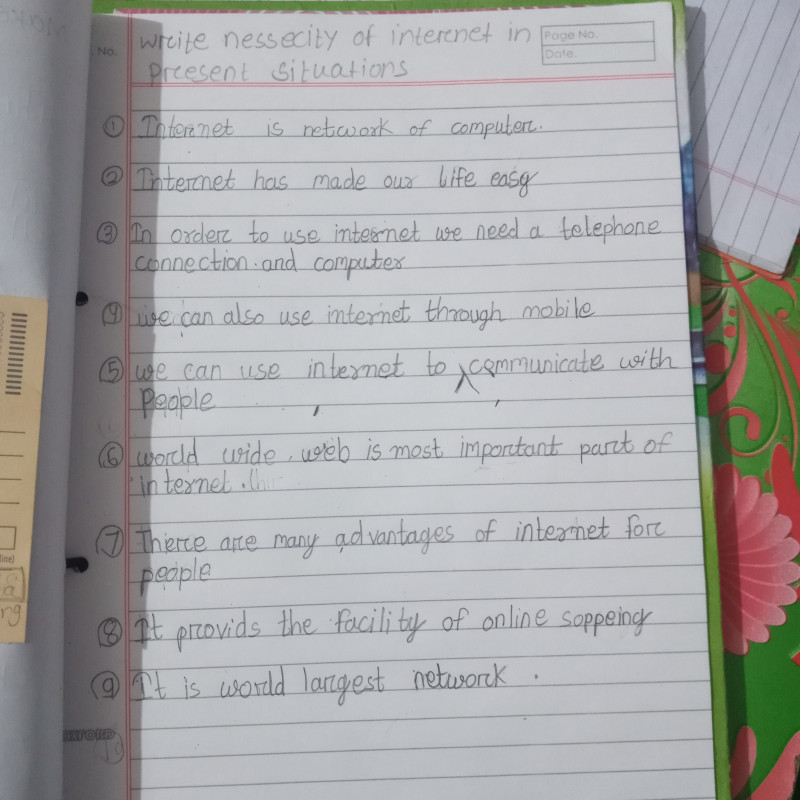 No.
write nessecity of internet in
Page No.
present situations
Date.
① Internet is network of computer.
② Internet has made our life easy
③ In order to use internet we need a telephone
connection.and computer
④ we can also use internet through mobile
⑤ we can use internet to communicate with
People
⑥ world wide web is most important part of
internet.
⑦ There are many advantages of internet for
people
⑧ It provids the facility of online soppeing
⑨ It is world largest network.
10